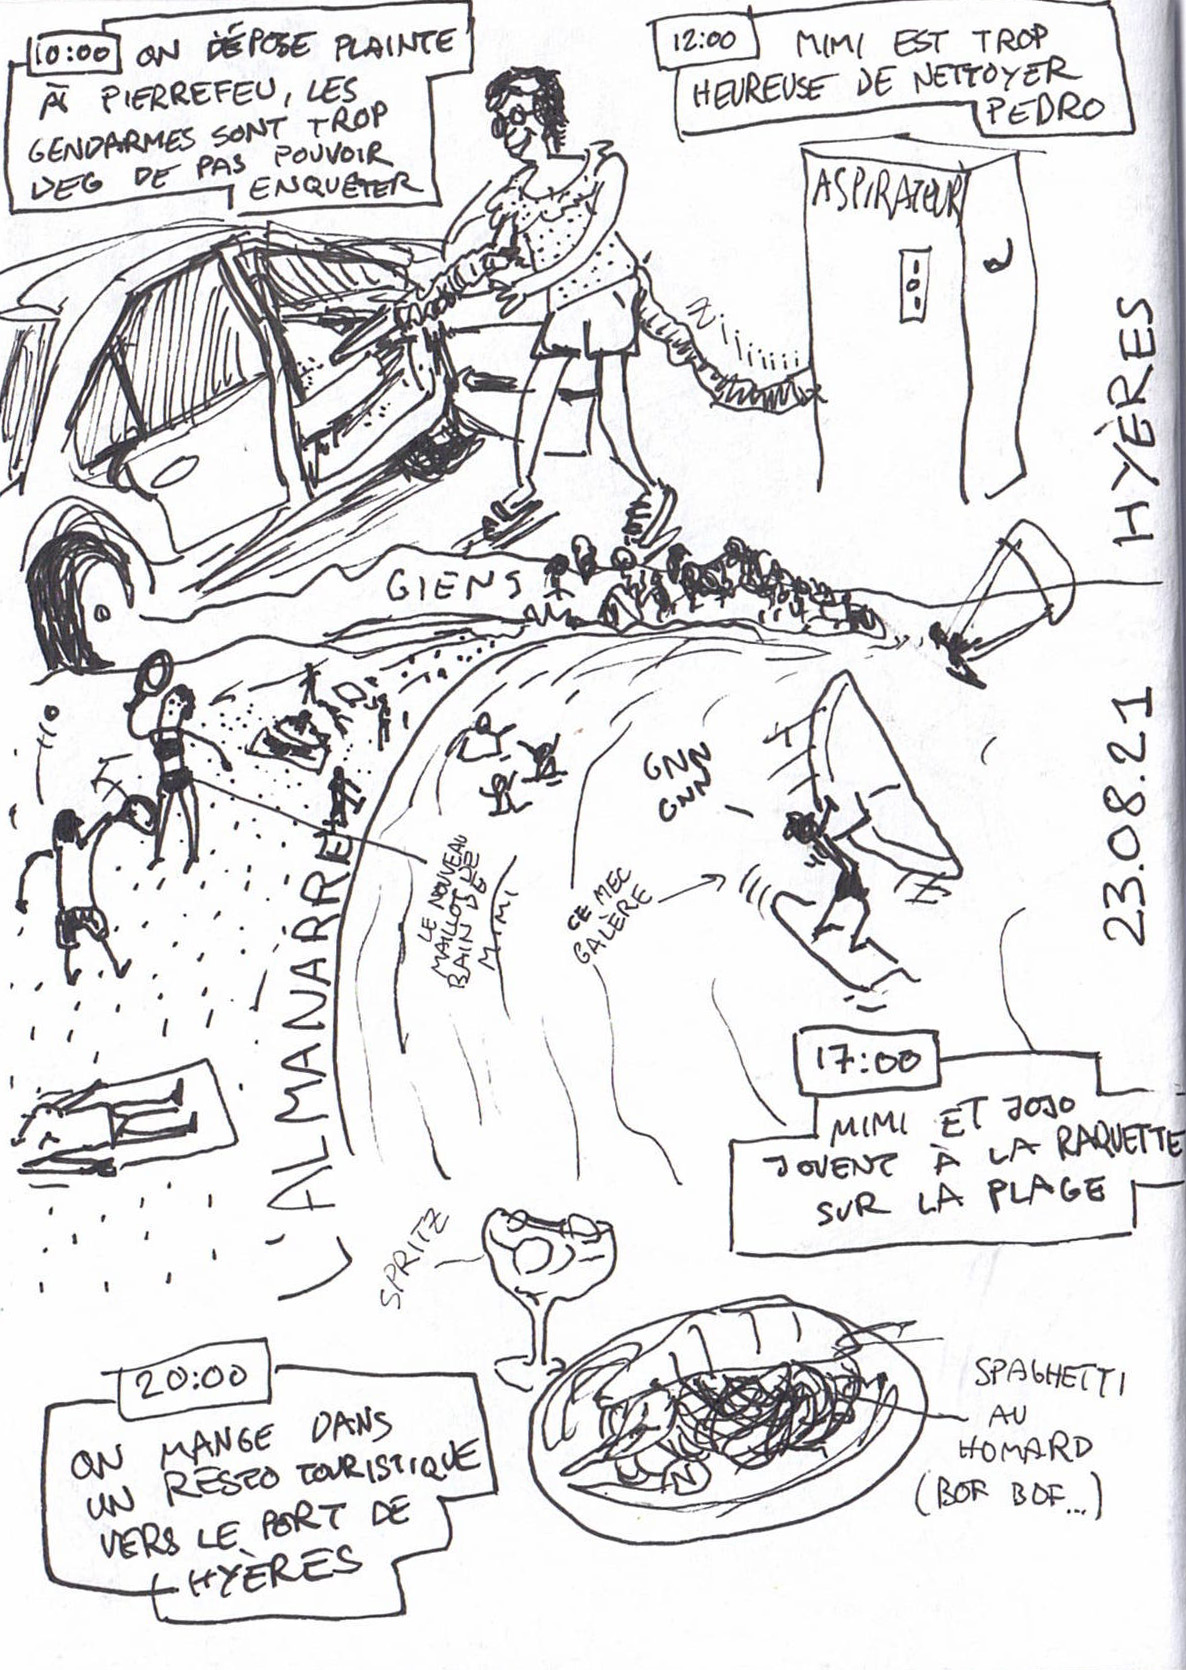 10:00 ON DÉPOSE PLAINTE
À PIERREFEU, LES
GENDARMES SONT TROP
DEG DE PAS POUVOIR
ENQUÊTER
12:00 MIMI EST TROP
HEUREUSE DE NETTOYER
PEDRO
ASPIRATEUR
HYÈRES
23.08.21
GIENS
GNN
GNN
LE NOUVEAU
MAILLOT DE
BAIN DE
MIMI
CE MEC
GALÈRE
L'ALMANARRE
17:00
MIMI ET JOJO
JOUENT À LA RAQUETTE
SUR LA PLAGE
SPRITZ
20:00
ON MANGE DANS
UN RESTO TOURISTIQUE
VERS LE PORT DE
HYÈRES
SPAGHETTI
AU
HOMARD
(BOF BOF...)